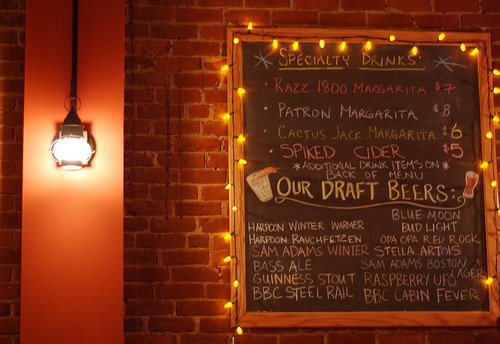 SPECIALTY DRINKS:
· RAZZ 1800 MARGARITA $7
· PATRON MARGARITA $8
· CACTUS JACK MARGARITA $6
· SPIKED CIDER $5
*ADDITIONAL DRINK ITEMS ON*
BACK OF MENU
OUR DRAFT BEERS:
BLUE MOON
HARPOON WINTER WARMER BUD LIGHT
HARPOON RAUCHFETZEN OPA OPA RED ROCK
SAM ADAMS WINTER STELLA ARTOIS
BASS ALE SAM ADAMS BOSTON LAGER
GUINNESS STOUT RASPBERRY UFO
BBC STEEL RAIL BBC CABIN FEVER